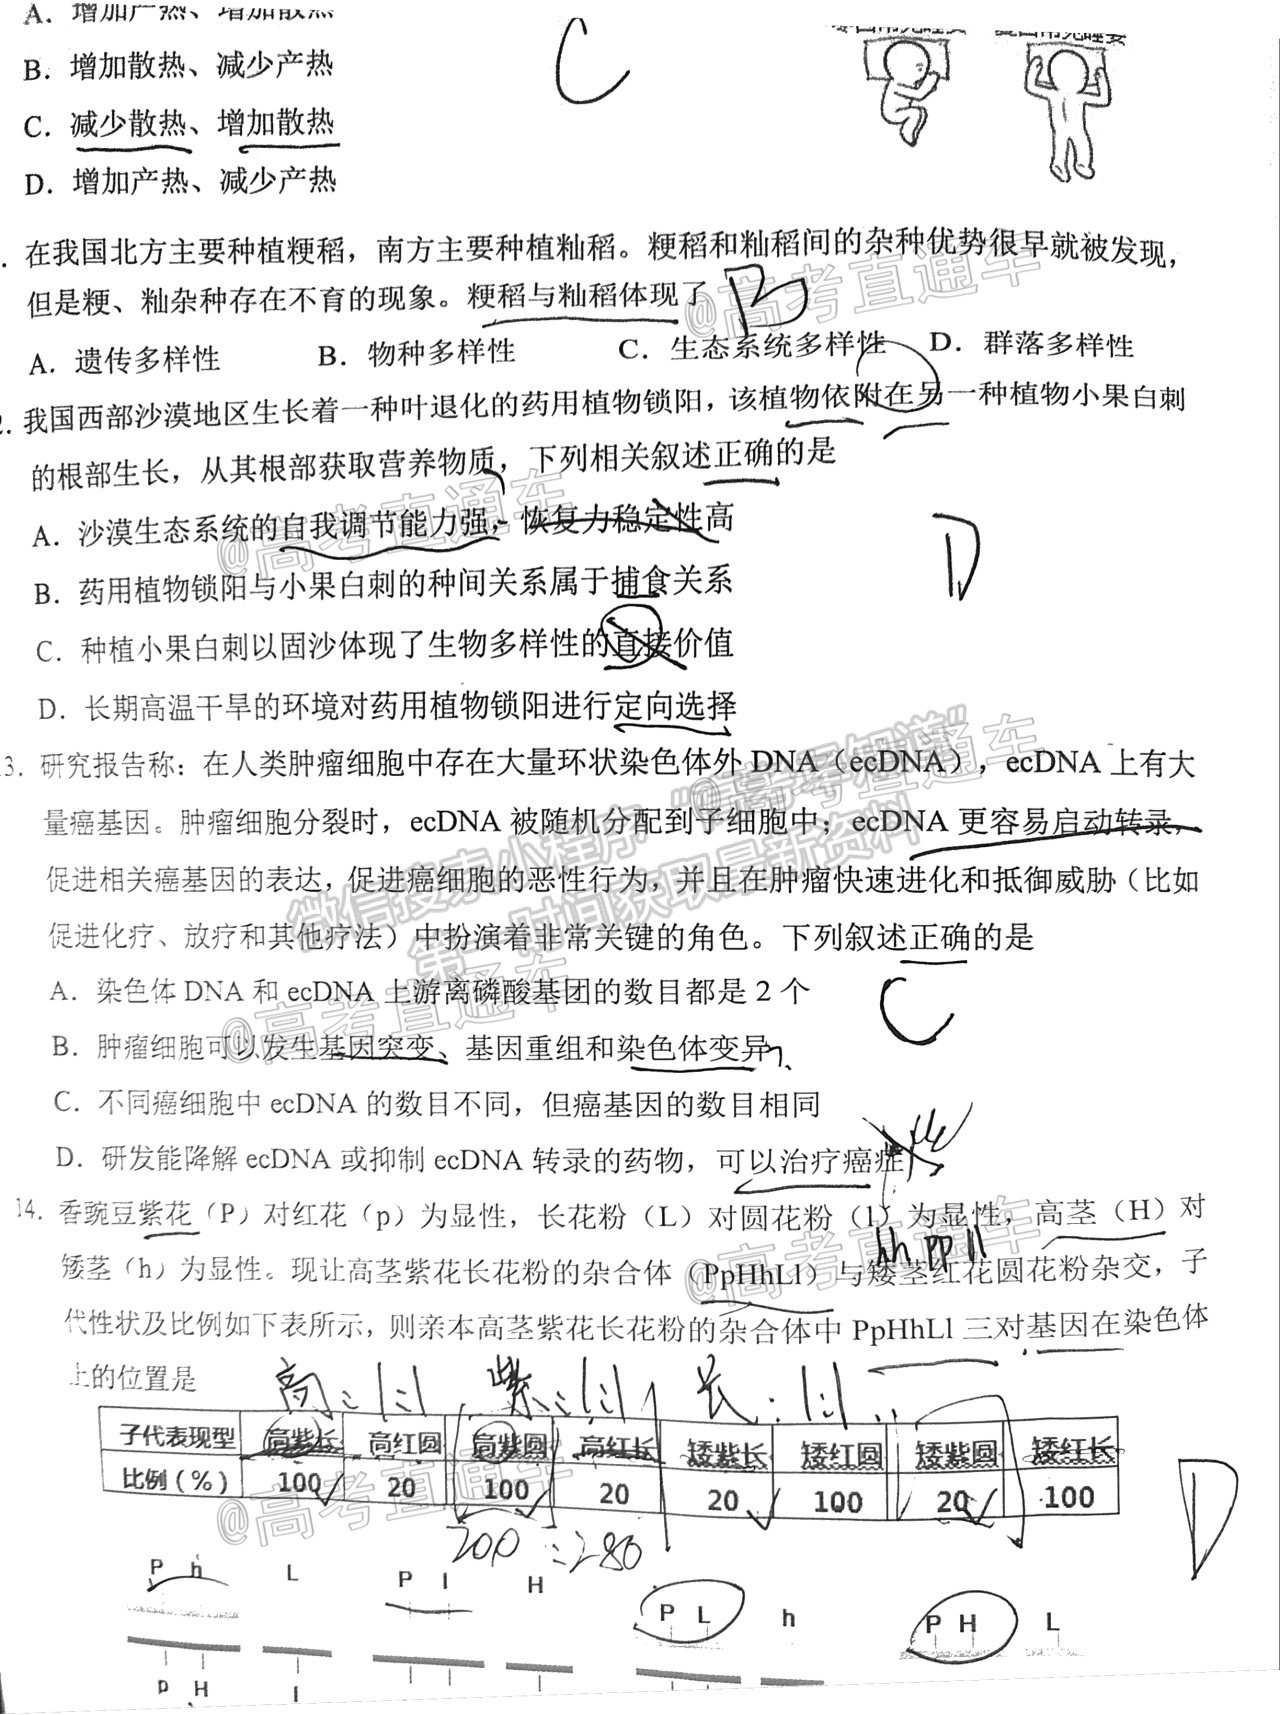 A. 增加产热、增加散热
B. 增加散热、减少产热
C
C. 减少散热、增加散热
D. 增加产热、减少产热
在我国北方主要种植粳稻，南方主要种植籼稻。粳稻和籼稻间的杂种优势很早就被发现，
但是粳、籼杂种存在不育的现象。粳稻与籼稻体现了
B
A. 遗传多样性 B. 物种多样性 C. 生态系统多样性 D. 群落多样性
2. 我国西部沙漠地区生长着一种叶退化的药用植物锁阳，该植物依附在另一种植物小果白刺
的根部生长，从其根部获取营养物质，下列相关叙述正确的是
A. 沙漠生态系统的自我调节能力强，恢复力稳定性高
D
B. 药用植物锁阳与小果白刺的种间关系属于捕食关系
C. 种植小果白刺以固沙体现了生物多样性的直接价值
D. 长期高温干旱的环境对药用植物锁阳进行定向选择
3. 研究报告称：在人类肿瘤细胞中存在大量环状染色体外 DNA（ecDNA），ecDNA 上有大
量癌基因。肿瘤细胞分裂时，ecDNA 被随机分配到子细胞中；ecDNA 更容易启动转录，
促进相关癌基因的表达，促进癌细胞的恶性行为，并且在肿瘤快速进化和抵御威胁（比如
促进化疗、放疗和其他疗法）中扮演着非常关键的角色。下列叙述正确的是
A. 染色体 DNA 和 ecDNA 上游离磷酸基团的数目都是 2 个
C
B. 肿瘤细胞可以发生基因突变、基因重组和染色体变异
C. 不同癌细胞中 ecDNA 的数目不同，但癌基因的数目相同
D. 研发能降解 ecDNA 或抑制 ecDNA 转录的药物，可以治疗癌症
14. 香豌豆紫花（P）对红花（p）为显性，长花粉（L）对圆花粉（l）为显性，高茎（H）对
hh pp ll
矮茎（h）为显性。现让高茎紫花长花粉的杂合体（PpHhLl）与矮茎红花圆花粉杂交，子
代性状及比例如下表所示，则亲本高茎紫花长花粉的杂合体中 PpHhLl 三对基因在染色体
上的位置是
高：1:1 紫：1:1 长：1:1
子代表现型 高紫长 高红圆 高紫圆 高红长 矮紫长 矮红圆 矮紫圆 矮红长
比例（%） 100 20 100 20 20 100 20 100
D
P h L P l H P L h P H L
p H l
@高考直通车
@高考直通车
@高考直通车
@高考直通车
@高考直通车
@高考直通车
微信搜索小程序“高考早知道”
第一时间获取最新资料